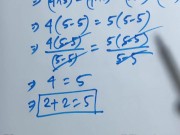 ⇒ 4(5-5) = 5(5-5)
⇒ 4(5-5)/(5-5) = 5(5-5)/5-5
⇒ 4 = 5
⇒ 2+2=5